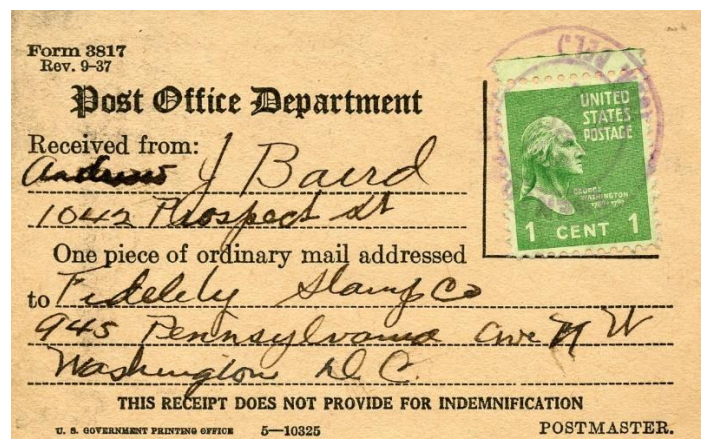 Form 3817
Rev. 9-37
Post Office Department
Received from:
Andrew J Baird
1042 Prospect St
One piece of ordinary mail addressed
to Fidelity Stamp Co
945 Pennsylvania Ave N W
Washington D. C.
THIS RECEIPT DOES NOT PROVIDE FOR INDEMNIFICATION
U. S. GOVERNMENT PRINTING OFFICE 5—10325
POSTMASTER.
UNITED
STATES
POSTAGE
GEORGE
WASHINGTON
1 CENT 1